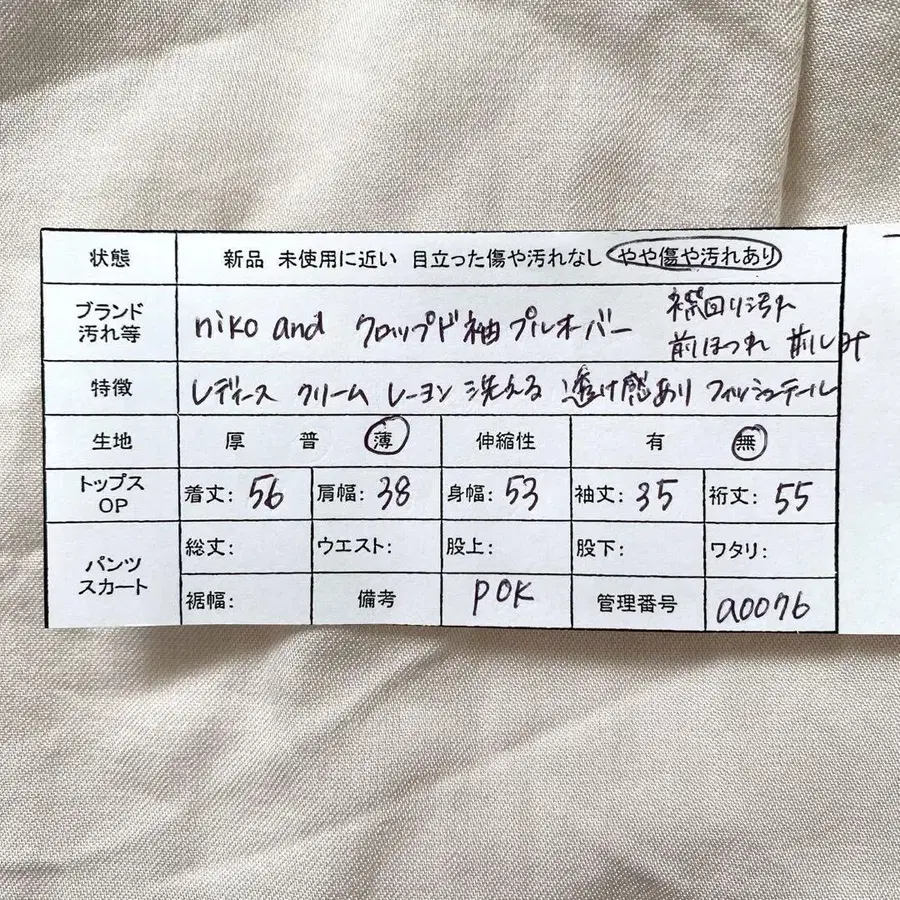 状態 新品 未使用に近い 目立った傷や汚れなし やや傷や汚れあり
ブランド 汚れ等 niko and クロップド袖プルオーバー 襟回り汚れ
前ほつれ 前しみ
特徴 レディース クリーム レーヨン 洗える 透け感あり フィッシュテール
生地 厚 普 薄 伸縮性 有 無
トップス OP 着丈: 56 肩幅: 38 身幅: 53 袖丈: 35 裄丈: 55
パンツ スカート 総丈: ウエスト: 股上: 股下: ワタリ:
裾幅: 備考 POK 管理番号 a0076